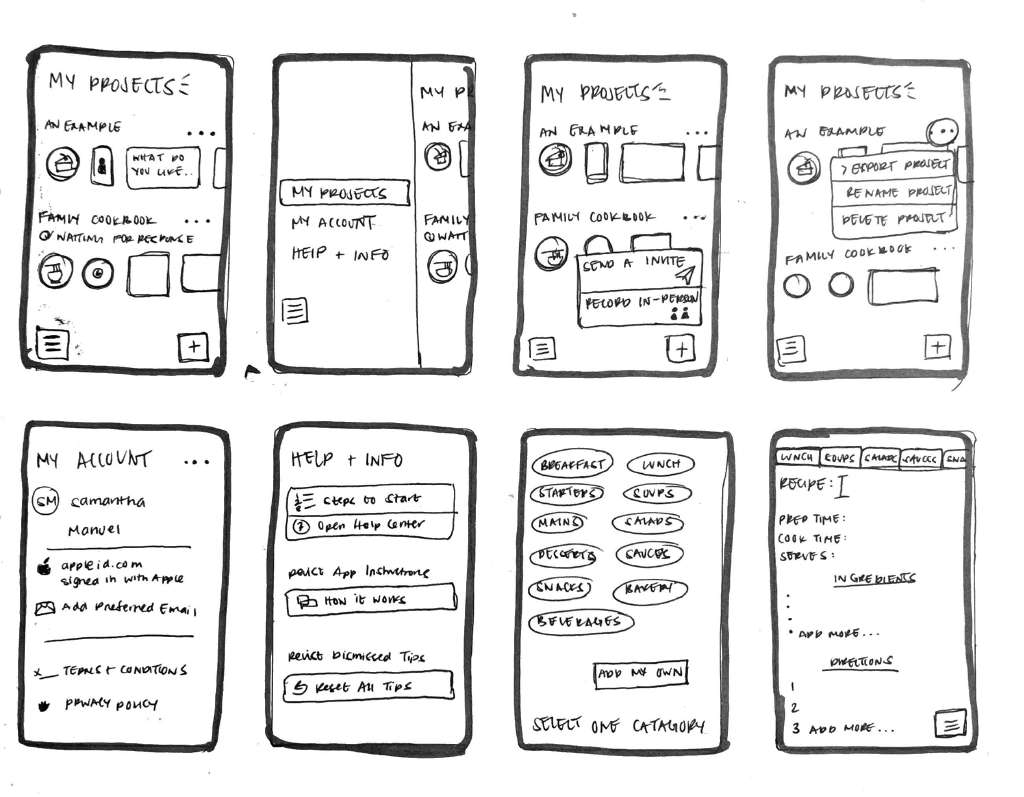 MY PROJECTS
AN EXAMPLE
...
WHAT DO
YOU LIKE...
FAMILY COOKBOOK ...
WAITING FOR RESPONSE
+
MY PR
AN EXA
MY PROJECTS
MY ACCOUNT
FAMILY
WAITT
HELP + INFO
MY PROJECTS
AN EXAMPLE ...
FAMILY COOKBOOK ...
SEND A INVITE
RECORD IN-PERSON
+
MY PROJECTS
AN EXAMPLE ...
> EXPORT PROJECT
RENAME PROJECT
DELETE PROJECT
FAMILY COOKBOOK ...
+
MY ACCOUNT ...
SM Samantha
Manuel
appleid.com
signed in with Apple
Add Preferred Email
x__ TERMS + CONDITIONS
PRIVACY POLICY
HELP + INFO
Steps to Start
? Open Help Center
Revisit App Instructions
How it works
Revisit Dismissed Tips
Reset All Tips
BREAKFAST LUNCH
STARTERS SOUPS
MAINS SALADS
DESSERTS SAUCES
SNACKS BAKERY
BEVERAGES
ADD MY OWN
SELECT ONE CATAGORY
LUNCH SOUPS SALADS SAUCES SNA
RECIPE:
PREP TIME:
COOK TIME:
SERVES:
INGREDIENTS
• ADD MORE...
DIRECTIONS
1
2
3 ADD MORE...